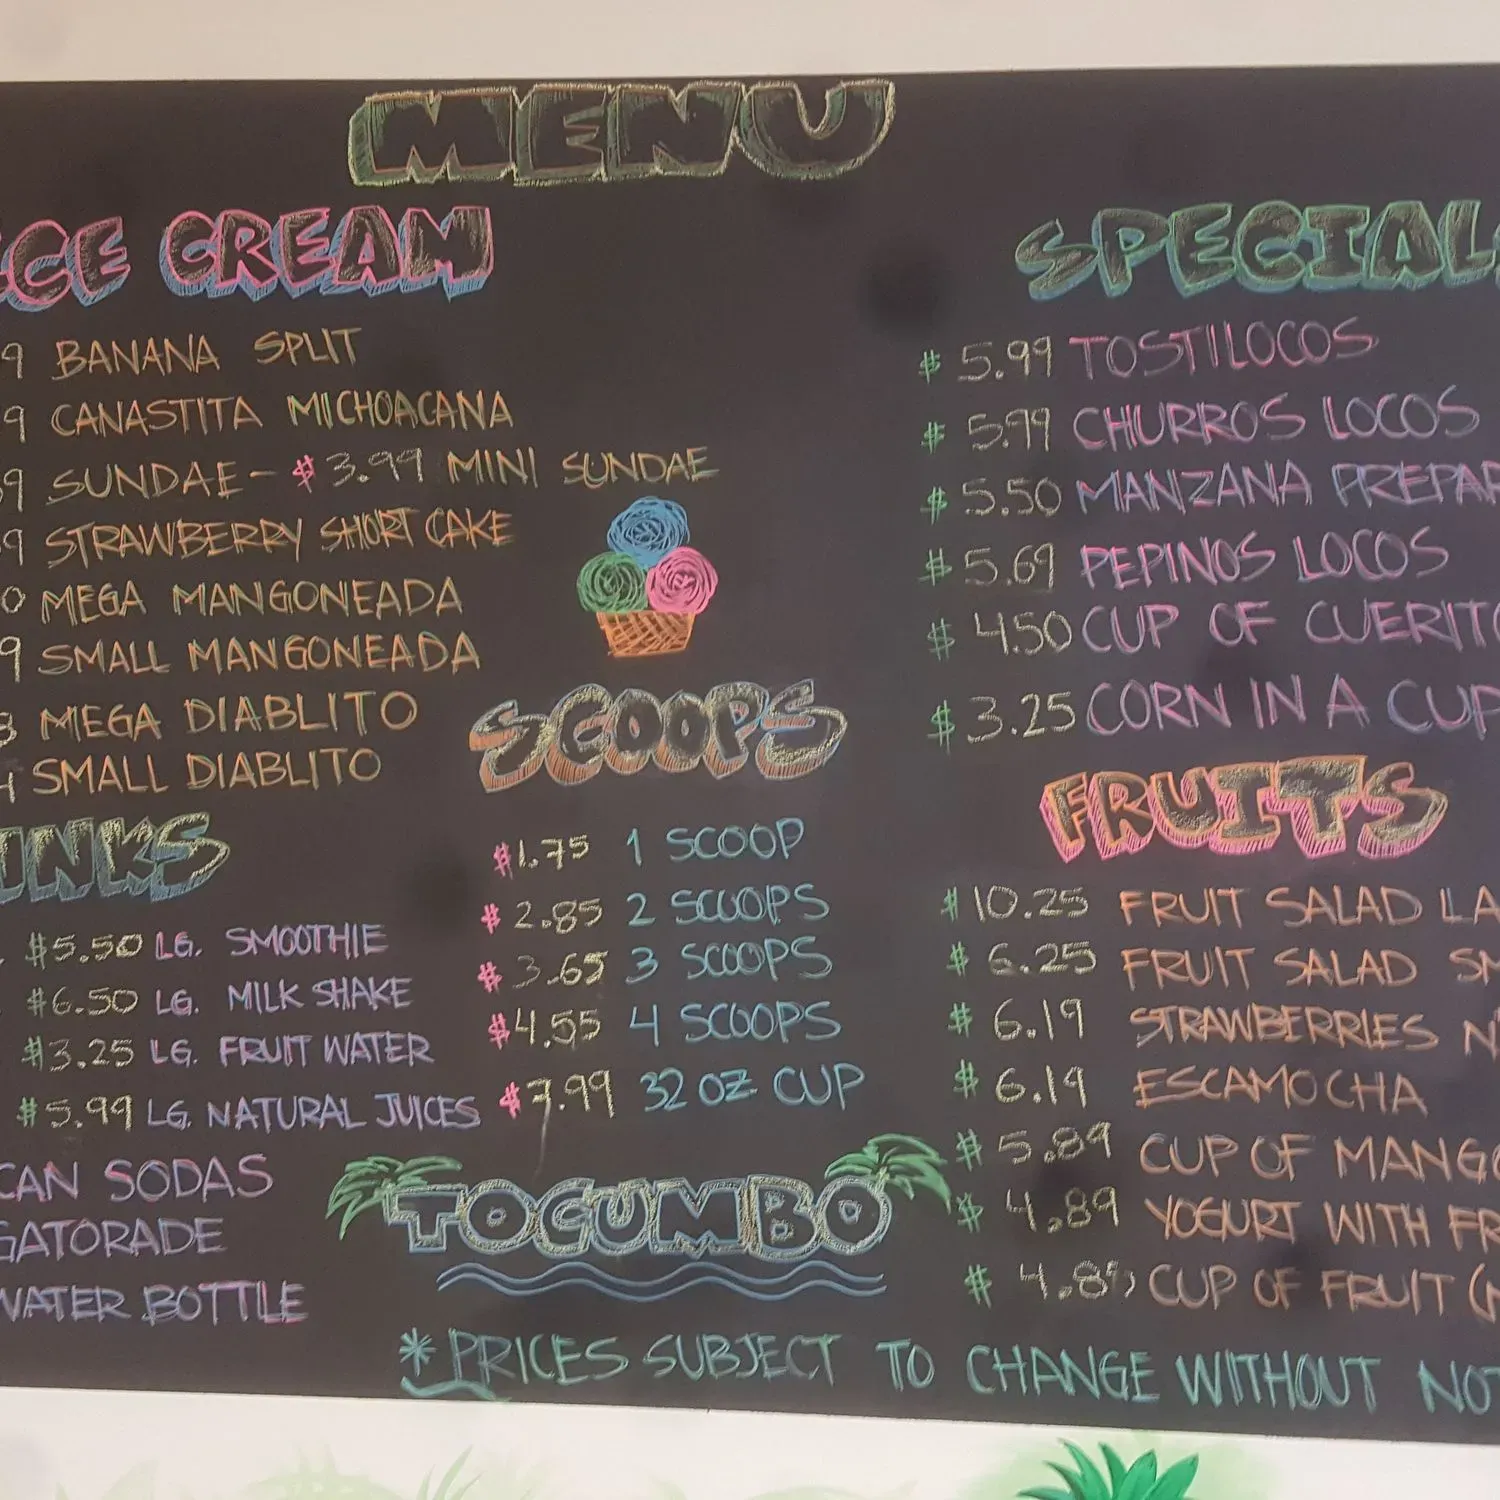 MENU
ICE CREAM
9 BANANA SPLIT
9 CANASTITA MICHOACANA
9 SUNDAE - $3.99 MINI SUNDAE
9 STRAWBERRY SHORT CAKE
0 MEGA MANGONEADA
9 SMALL MANGONEADA
MEGA DIABLITO
SMALL DIABLITO
INKS
$5.50 LG. SMOOTHIE
$6.50 LG. MILK SHAKE
$3.25 LG. FRUIT WATER
$5.99 LG. NATURAL JUICES
CAN SODAS
GATORADE
WATER BOTTLE
SCOOPS
$1.75 1 SCOOP
$2.85 2 SCOOPS
$3.65 3 SCOOPS
$4.55 4 SCOOPS
$7.99 32 OZ CUP
TOCUMBO
SPECIAL
$5.99 TOSTILOCOS
$5.99 CHURROS LOCOS
$5.50 MANZANA PREPAR
$5.69 PEPINOS LOCOS
$4.50 CUP OF CUERIT
$3.25 CORN IN A CUP
FRUITS
$10.25 FRUIT SALAD LA
$6.25 FRUIT SALAD SM
$6.19 STRAWBERRIES
$6.19 ESCAMOCHA
$5.89 CUP OF MANGO
$4.89 YOGURT WITH FR
$4.89 CUP OF FRUIT
* PRICES SUBJECT TO CHANGE WITHOUT NOT